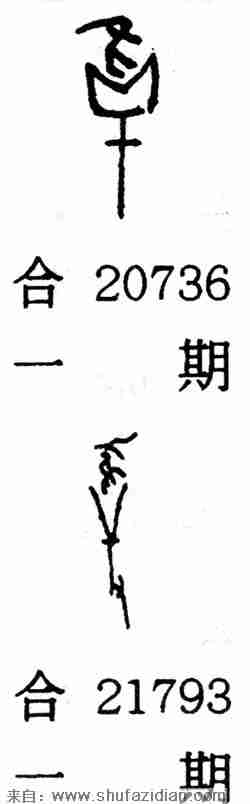 合 20736
一 期
合 21793
一 期
来自：www.shufazidian.com